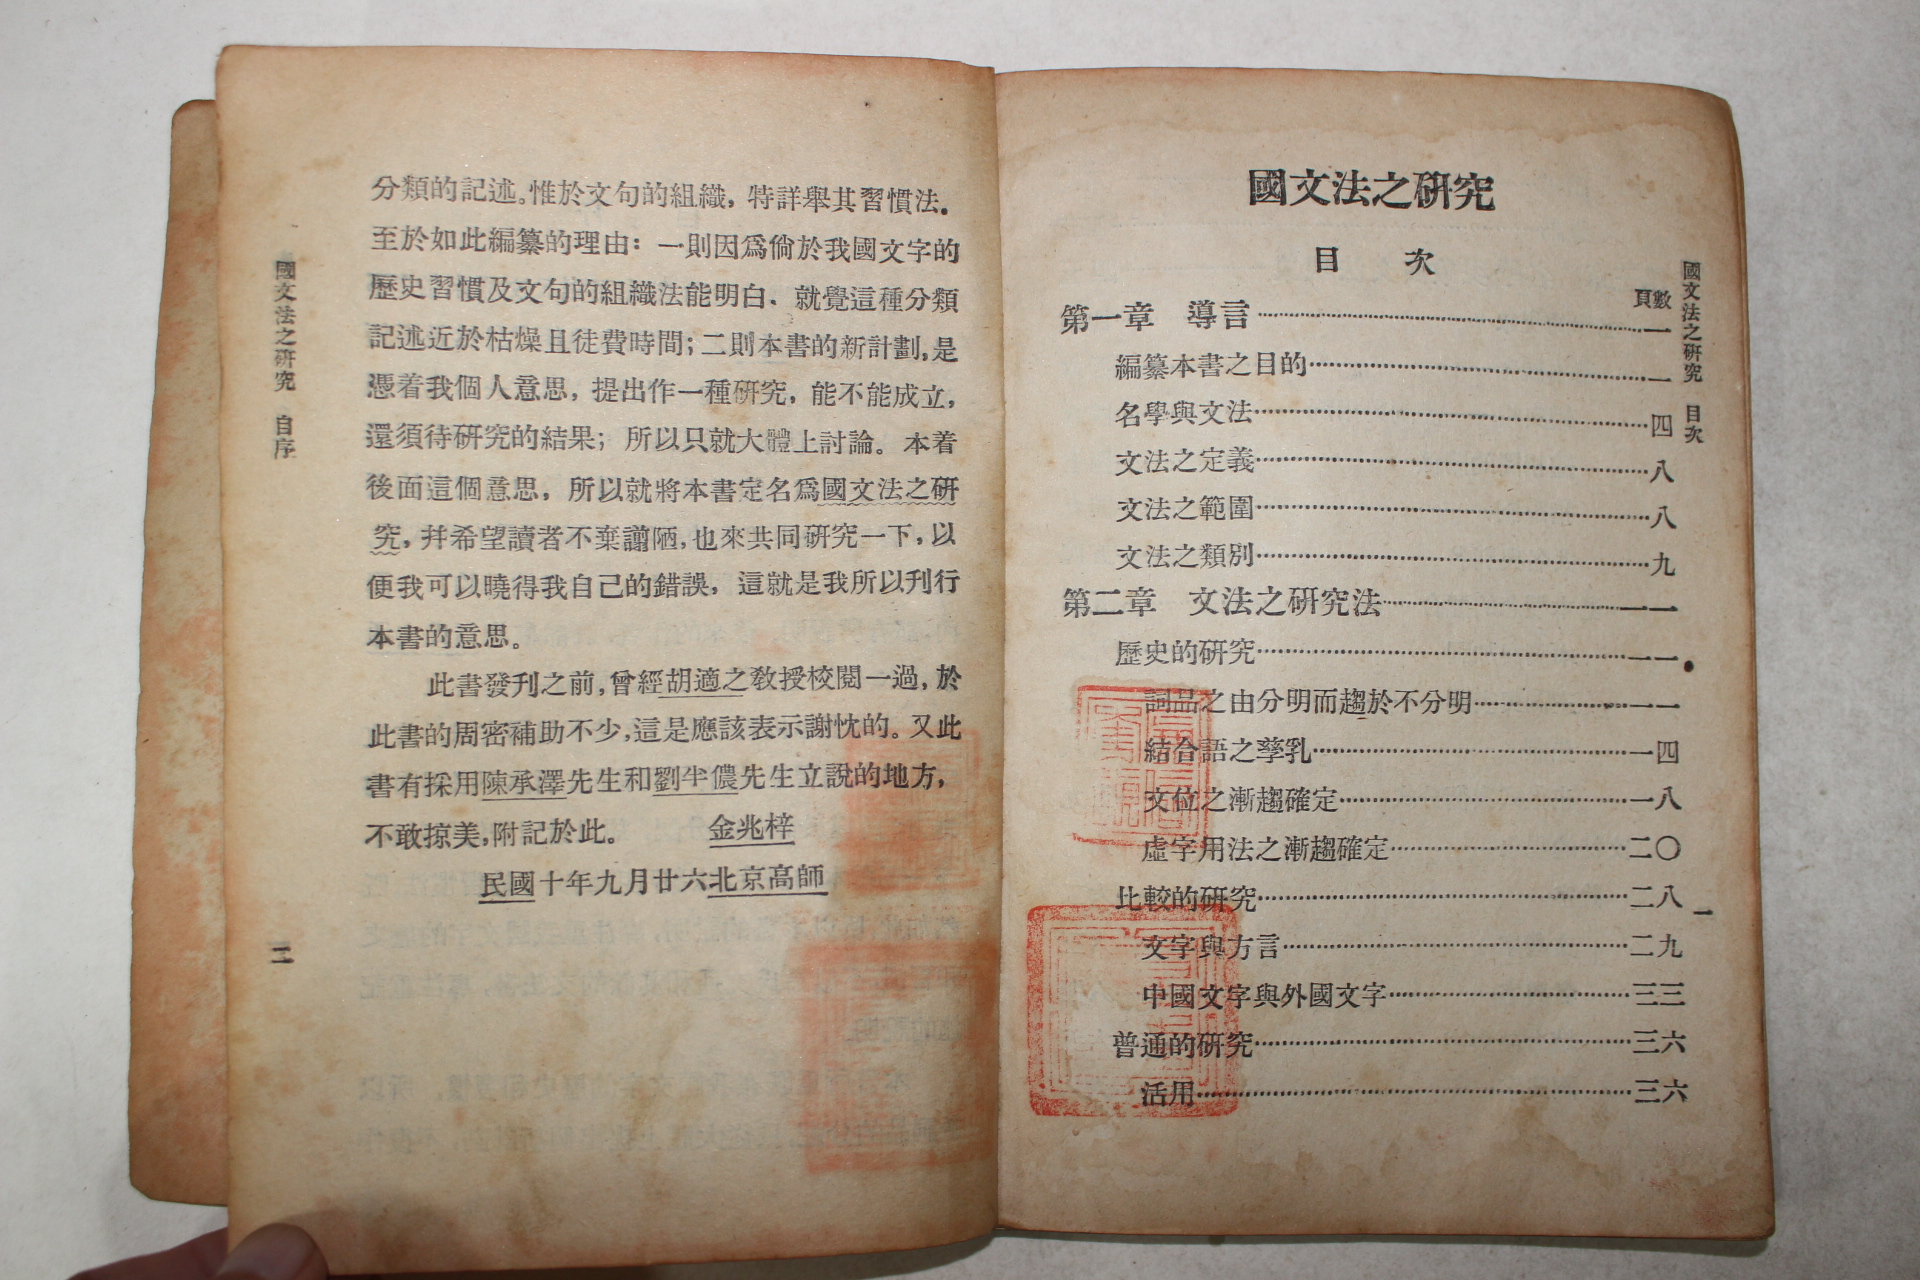 國文法之研究　自序
分類的記述。惟於文句的組織，特詳舉其習慣法．
至於如此編纂的理由：一則因爲倘於我國文字的
歷史習慣及文句的組織法能明白、就覺這種分類
記述近於枯燥且徒費時間；二則本書的新計劃，是
憑着我個人意思，提出作一種研究，能不能成立，
還須待研究的結果；所以只就大體上討論。本着
後面這個意思，所以就將本書定名爲國文法之研
究，幷希望讀者不棄謭陋，也來共同研究一下，以
便我可以曉得我自己的錯誤，這就是我所以刊行
本書的意思。
此書發刊之前，曾經胡適之教授校閱一過，於
此書的周密補助不少，這是應該表示謝忱的。又此
書有採用陳承澤先生和劉半儂先生立說的地方，
不敢掠美，附記於此。　金兆梓
民國十年九月廿六北京高師
二
國文法之研究
目　次
頁數
第一章　導言…………一
編纂本書之目的…………一
名學與文法…………四
文法之定義…………八
文法之範圍…………八
文法之類別…………九
第二章　文法之研究法…………一一
歷史的研究…………一一
詞品之由分明而趨於不分明…………一一
結合語之孳乳…………一四
文位之漸趨確定…………一八
虛字用法之漸趨確定…………二〇
比較的研究…………二八
文字與方言…………二九
中國文字與外國文字…………三三
普通的研究…………三六
活用…………三六
國文法之研究　目次
一